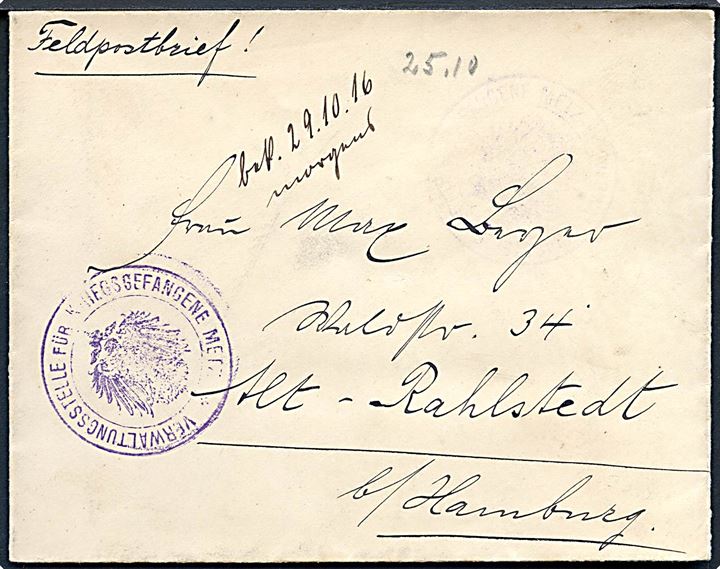 Feldpostbrief!
25.10
bek. 29.10.16
morgens
Frau Max Beyer
Waldstr. 34
Alt-Rahlstedt
b/Hamburg.
VERWALTUNGSSTELLE FÜR KRIEGSGEFANGENE